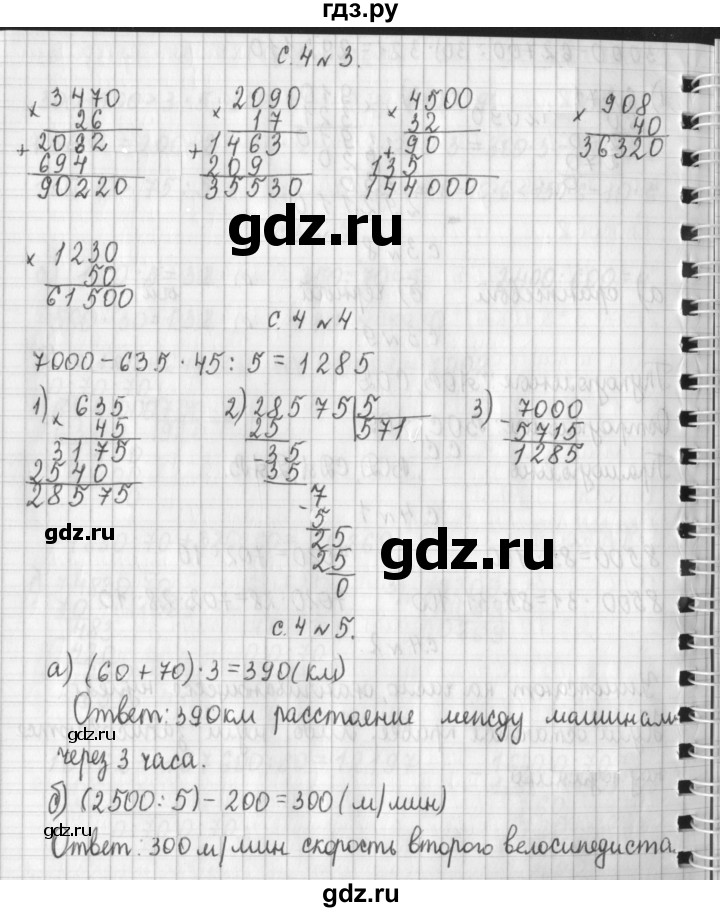 гдз.ру
с. 4 № 3.
× 3470
26
+ 2082
694
90220
× 2090
17
+ 1463
209
35530
× 4500
32
+ 90
135
144000
× 908
40
36320
× 1230
50
61500
gdz.ru
с. 4 № 4.
7000 – 635 · 45 : 5 = 1285
1) × 635
45
3175
2540
28575
2) 28575 5
25 571
- 35
35
- 7
5
25
25
0
3) 7000
- 5715
1285
gdz.ru
gdz.ru
с. 4 № 5.
а) (60 + 70) · 3 = 390 (км)
Ответ: 390 км расстояние между машинами
через 3 часа.
gdz.ru
б) (2500 : 5) – 200 = 300 (м/мин)
gdz.ru
Ответ: 300 м/мин скорость второго велосипедиста.
gdz.ru